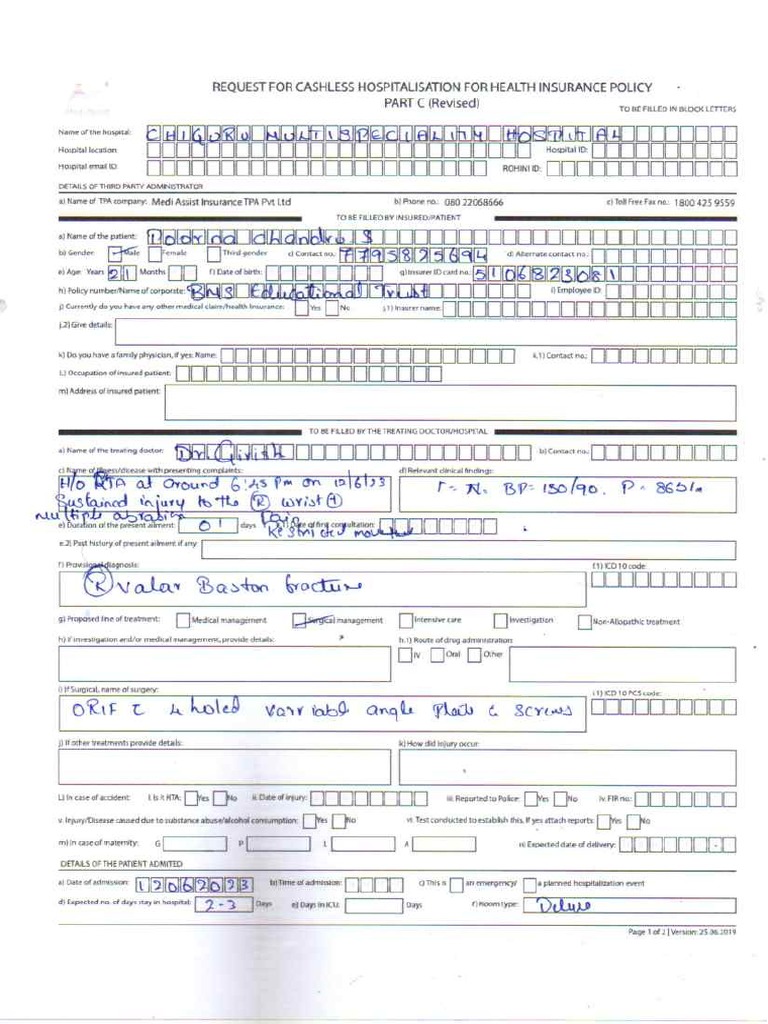 REQUEST FOR CASHLESS HOSPITALISATION FOR HEALTH INSURANCE POLICY
PART C (Revised)
TO BE FILLED IN BLOCK LETTERS
Name of the hospital: CHIGURU MULTISPECIALITY HOSPITAL
Hospital location: Hospital ID:
Hospital email ID: ROHINI ID:
DETAILS OF THIRD PARTY ADMINISTRATOR
a) Name of TPA company: Medi Assist Insurance TPA Pvt Ltd b) Phone no.: 080 22068666 c) Toll Free Fax no.: 1800 425 9559
TO BE FILLED BY INSURED/PATIENT
a) Name of the patient: Poorna chandra S
b) Gender: Male Female Third gender c) Contact no.: 7795825694 d) Alternate contact no.:
e) Age: Years 21 Months f) Date of birth: g) Insurer ID card no.: 5106823081
h) Policy number/Name of corporate: BNS Educational Trust i) Employee ID:
j) Currently do you have any other medical claim/health insurance: Yes No j.1) Insurer name:
j.2) Give details:
k) Do you have a family physician, if yes: Name: k.1) Contact no.:
L) Occupation of insured patient:
m) Address of insured patient:
TO BE FILLED BY THE TREATING DOCTOR/HOSPITAL
a) Name of the treating doctor: Dr. Girish b) Contact no.:
c) Name of illness/disease with presenting complaints: d) Relevant clinical findings:
H/O RTA at around 6:45 Pm on 12/6/23 T = N. BP= 130/90. P = 86b/m
Sustained injury to the (R) wrist
multiple abrasion Pain
e) Duration of the present ailment: 01 days e.1) Date of first consultation:
Restricted movement
e.2) Past history of present ailment if any:
f) Provisional diagnosis: f.1) ICD 10 code:
(R) valar Baston fracture
g) Proposed line of treatment: Medical management Surgical management Intensive care Investigation Non-Allopathic treatment
h) If investigation and/or medical management, provide details: h.1) Route of drug administration:
IV Oral Other
i) If Surgical, name of surgery: i.1) ICD 10 PCS code:
ORIF c 4 holed varriable angle Plate c screws
j) If other treatments provide details: k) How did injury occur:
L) In case of accident: i. Is it RTA: Yes No ii. Date of injury: iii. Reported to Police: Yes No iv. FIR no.:
v. Injury/Disease caused due to substance abuse/alcohol consumption: Yes No vi. Test conducted to establish this. If yes attach reports: Yes No
m) In case of maternity: G P L A n) Expected date of delivery:
DETAILS OF THE PATIENT ADMITED
a) Date of admission: 12062023 b) Time of admission: c) This is an emergency/ a planned hospitalization event
d) Expected no. of days stay in hospital: 2-3 Days e) Days in ICU: Days f) Room type: Deluxe
Page 1 of 2 | Version: 25.06.2019